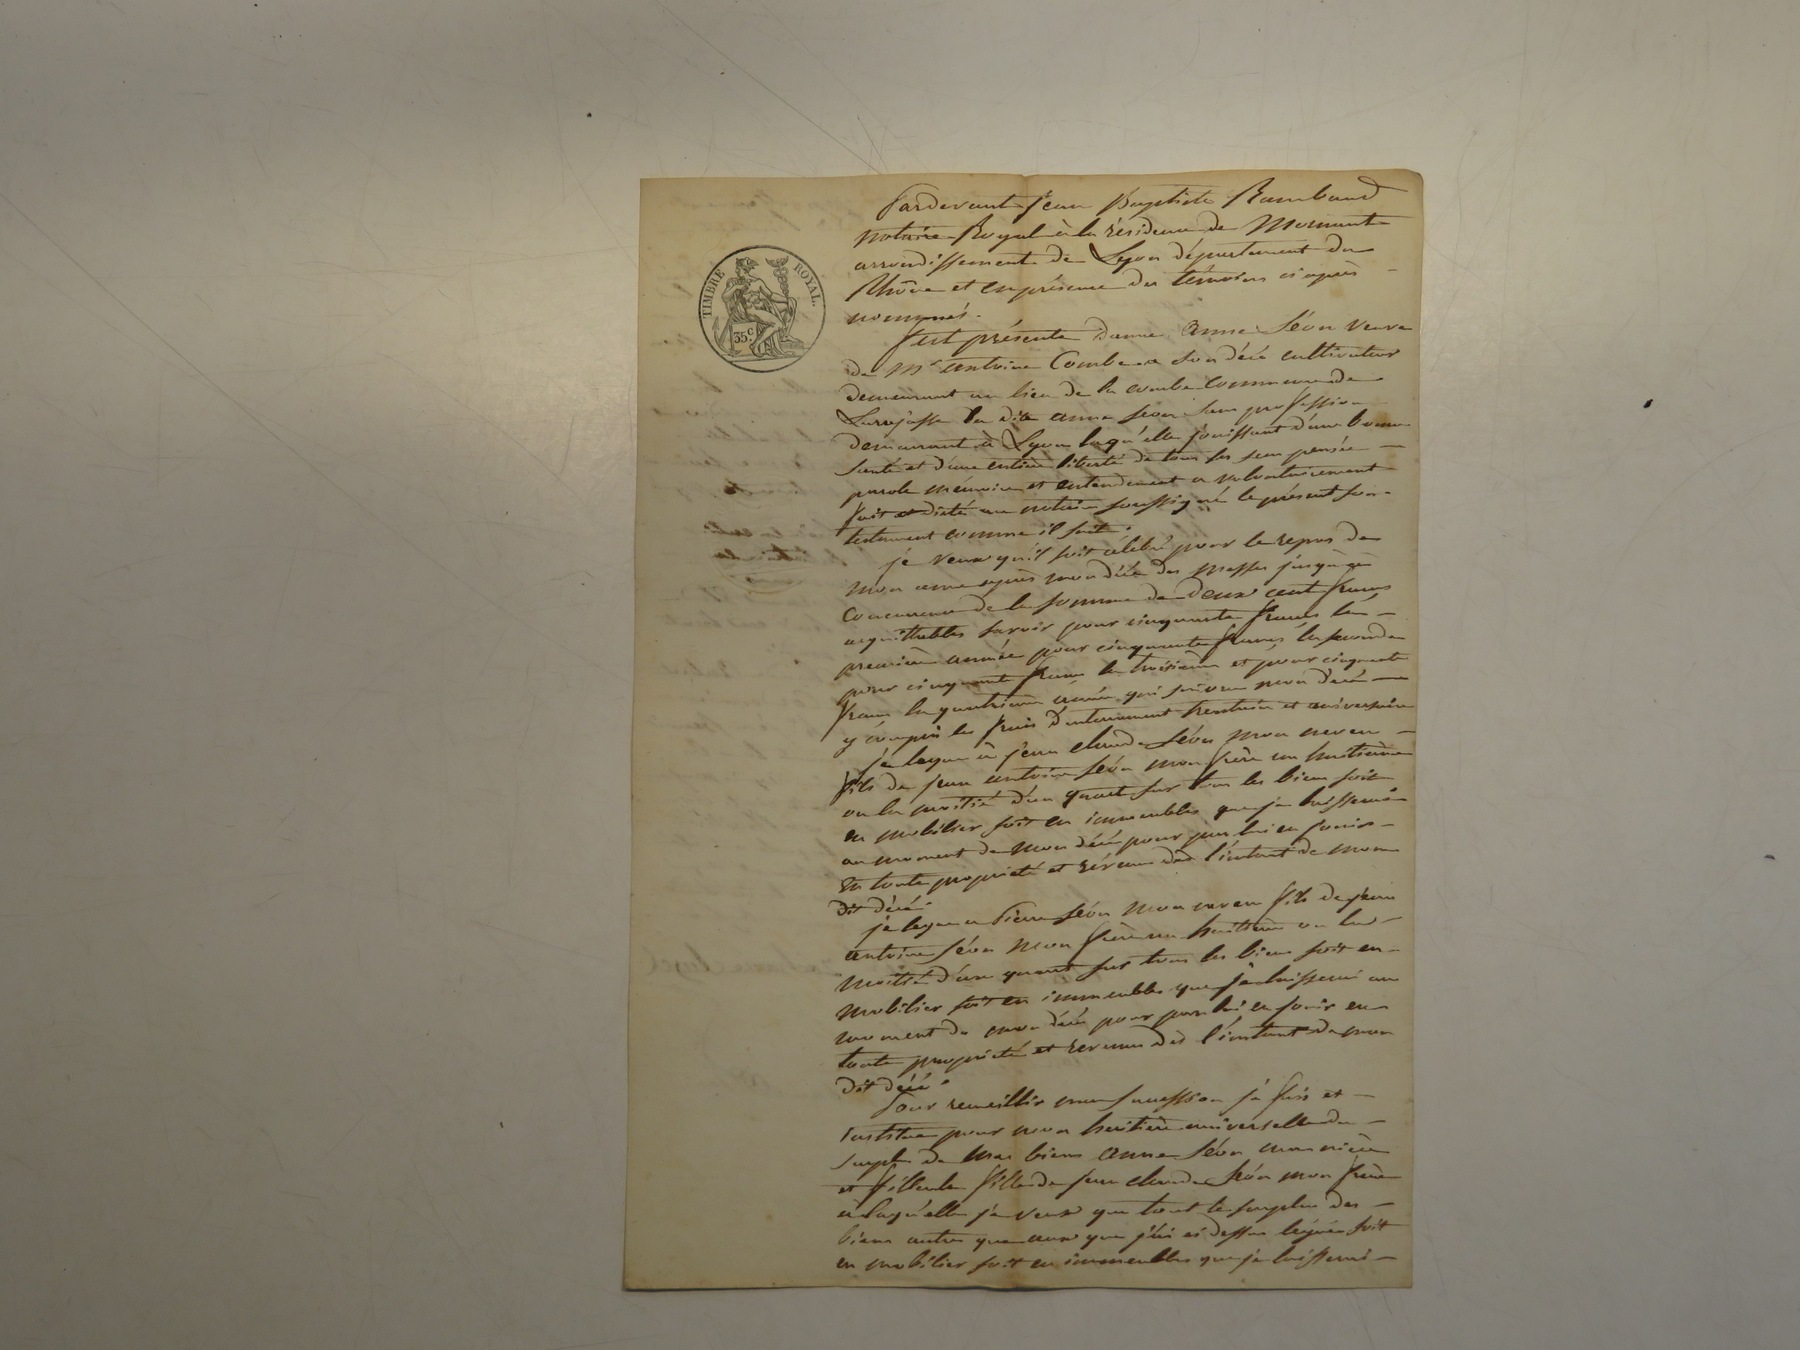 TIMBRE ROYAL.
35 c.
Pardevant Jean Baptiste Rambaud
notaire Royal à la résidence de Mornant
arrondissement de Lyon département du
Rhône et en présence des témoins ci après
nommés.
fut présente Dame Anne Séon veuve
de Mr antoine Combe a son décè cultivateur
demeurant au lieu de la combe commune de
Larajasse la dite anne Séon sans profession
demeurant à Lyon laqu'elle jouissant d'une bonne
santé et d'une entière liberté de tous ses sens pensée
parole mémoire et entendement a volontairement
fait et dicté au notaire soussigné le présent son
testament comme il suit.
je veux qu'il soit célébré pour le repos de
mon ame après mon décè des messes jusqu'à
concurence de la somme de deux cent francs
acquittables savoir pour cinquante francs la
première année pour cinquante francs la seconde
pour cinquante francs la troisième et pour cinquante
francs la quatrième année qui suivra mon décè
y compris les frais d'enterrement trentain et aniversaire
je legue à jean claude Séon mon neveu
fils de jean antoine Séon mon frère un huitième
ou la moitié d'un quart sur tous les biens soit
en mobilier soit en immeubles que je laisserai
au moment de mon décè pour par lui en jouir
en toute propriété et revenus dès l'instant de mon
dit décè.
je legue a Pierre Séon mon neveu fils de jean
antoine Séon mon frère un huitième ou la
moitié d'un quart sur tous les biens soit en
mobilier soit en immeubles que je laisserai au
moment de mon décè pour par lui en jouir en
toute propriété et revenus dès l'instant de mon
dit décè.
Pour recueillir ma succession je fais et
institue pour mon heritière universelle du
surplu de mes biens anne Séon ma nièce
et filleule fille de jean claude Séon mon frère
a laqu'elle je veux que tout le surplus des
biens autres que ceux que j'ai ci dessus légués soit
en mobilier soit en immeubles que je laisserai